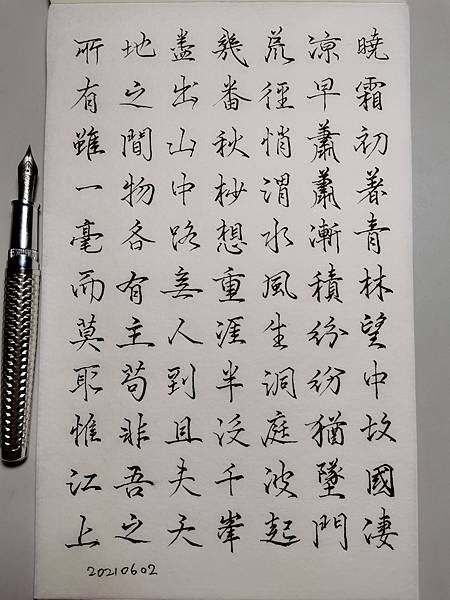 曉霜初著青林望中故國淒
涼早蕭蕭漸積紛紛猶墜門
荒徑悄渭水風生洞庭波起
幾番秋杪想重涯半沒千峯
盡出山中路無人到且夫天
地之間物各有主苟非吾之
所有雖一毫而莫取惟江上
20210602